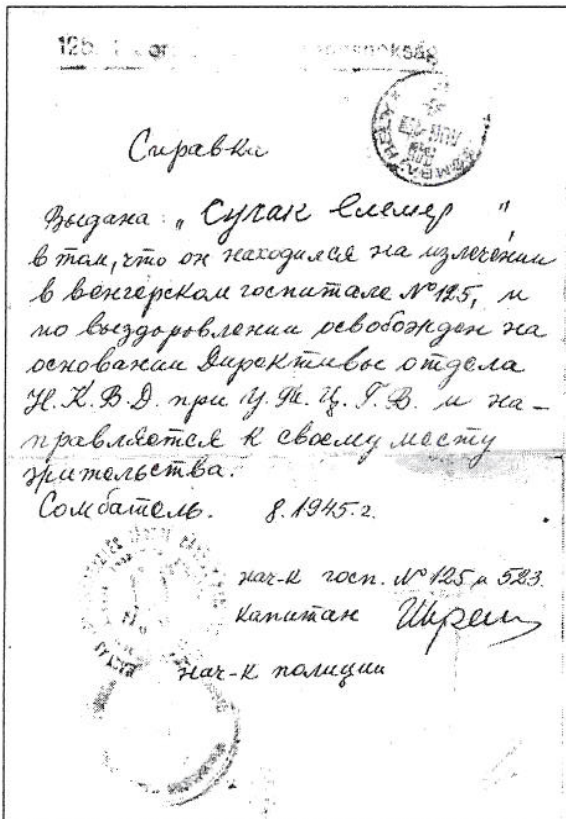 Справка
Выдана: "Сулак Елемер",
в том, что он находился на излечении
в венгерском госпитале №125, и
по выздоровлении освобожден на
основании Директивы отдела
Н.К.В.Д. при У.Т.Ц.Г.В. и на-
правляется к своему месту
жительства.
Сомбатель. 8.1945.г.
нач-к госп. №125 и 523.
капитан
нач-к полиции